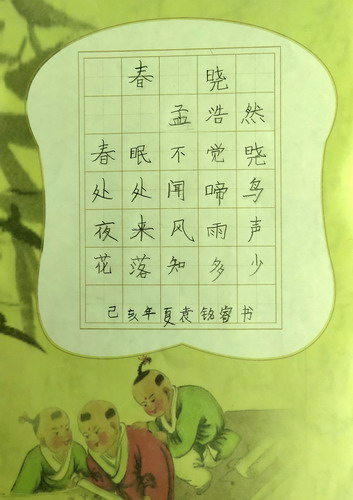 春晓
孟浩然
春眠不觉晓
处处闻啼鸟
夜来风雨声
花落知多少
己亥年夏袁铭睿书